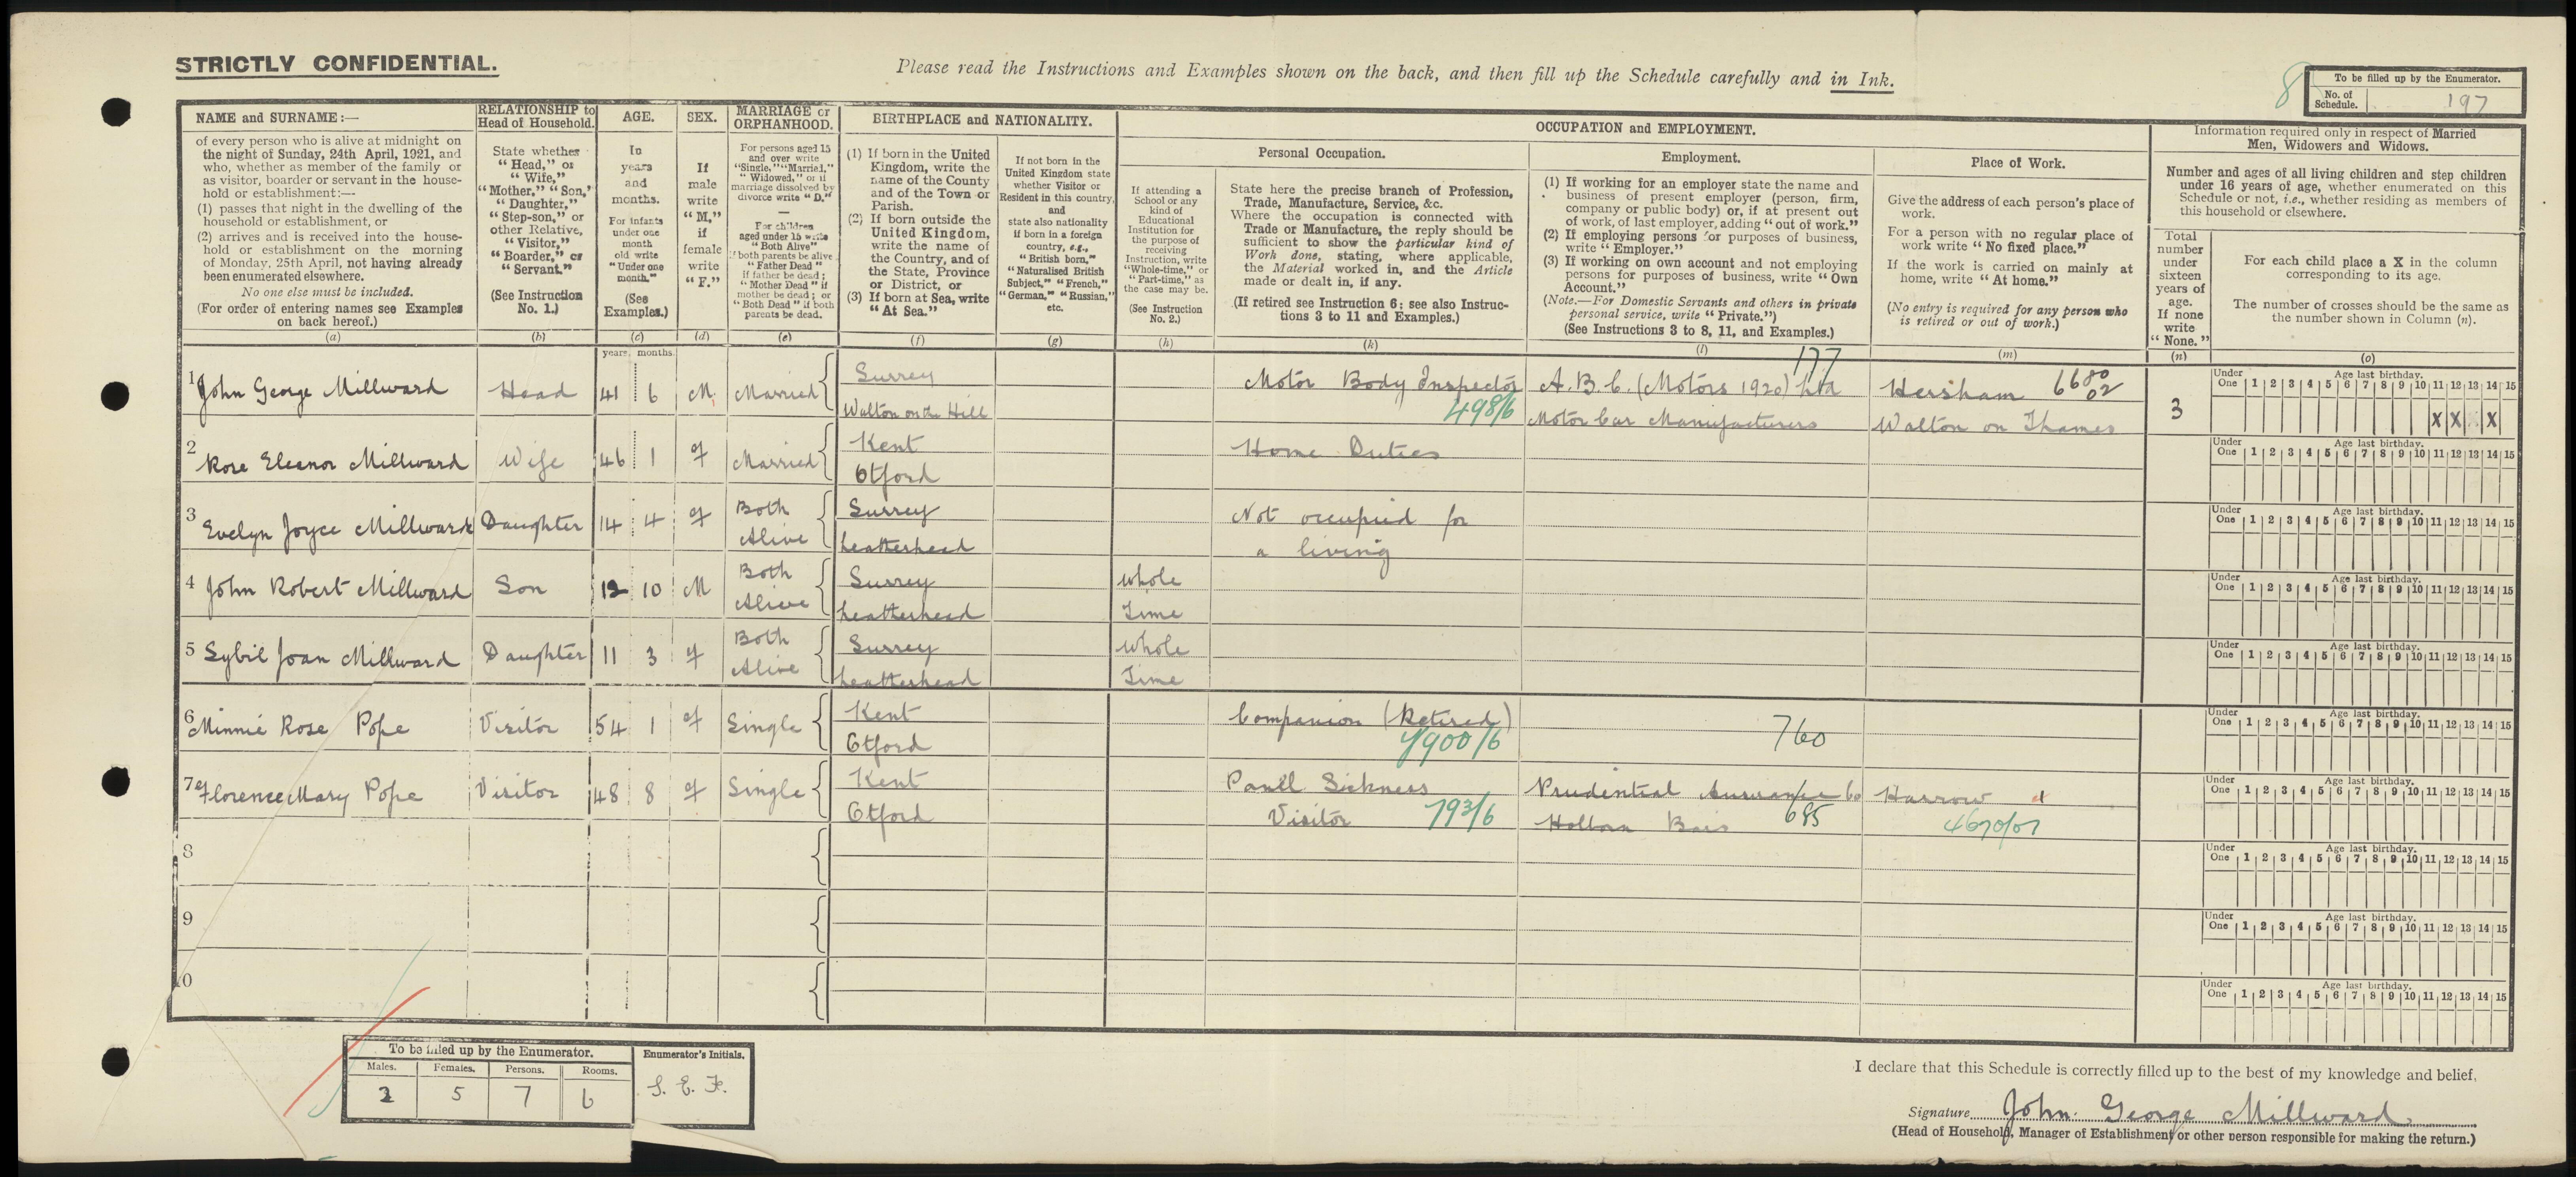 STRICTLY CONFIDENTIAL.
Please read the Instructions and Examples shown on the back, and then fill up the Schedule carefully and in Ink.
8
To be filled up by the Enumerator.
No. of Schedule. 197
NAME and SURNAME:—
of every person who is alive at midnight on
the night of Sunday, 24th April, 1921, and
who, whether as member of the family or
as visitor, boarder or servant in the house-
hold or establishment:—
(1) passes that night in the dwelling of the
household or establishment, or
(2) arrives and is received into the house-
hold or establishment on the morning
of Monday, 25th April, not having already
been enumerated elsewhere.
No one else must be included.
(For order of entering names see Examples
on back hereof.)
(a)
RELATIONSHIP to
Head of Household.
State whether
"Head," or
"Wife,"
"Mother," "Son,"
"Daughter,"
"Step-son," or
other Relative,
"Visitor,"
"Boarder," or
"Servant."
(See Instruction
No. 1.)
(b)
AGE.
In
years
and
months.
For infants
under one
month
old write
"Under one
month."
(See
Examples.)
(c)
SEX.
If
male
write
"M,"
if
female
write
"F."
(d)
MARRIAGE or
ORPHANHOOD.
For persons aged 15
and over write
"Single," "Married,"
"Widowed," or if
marriage dissolved by
divorce write "D."
—
For children
aged under 15 write
"Both Alive"
if both parents be alive
"Father Dead"
if father be dead;
"Mother Dead" if
mother be dead; or
"Both Dead" if both
parents be dead.
(e)
BIRTHPLACE and NATIONALITY.
(1) If born in the United
Kingdom, write the
name of the County
and of the Town or
Parish.
(2) If born outside the
United Kingdom,
write the name of
the Country, and of
the State, Province
or District, or
(3) If born at Sea, write
"At Sea."
(f)
If not born in the
United Kingdom state
whether Visitor or
Resident in this country,
and
state also nationality
if born in a foreign
country, e.g.,
"British born,"
"Naturalised British
Subject," "French,"
"German," "Russian,"
etc.
(g)
OCCUPATION and EMPLOYMENT.
If attending a
School or any
kind of
Educational
Institution for
the purpose of
receiving
Instruction, write
"Whole-time," or
"Part-time," as
the case may be.
(See Instruction
No. 2.)
(h)
Personal Occupation.
State here the precise branch of Profession,
Trade, Manufacture, Service, &c.
Where the occupation is connected with
Trade or Manufacture, the reply should be
sufficient to show the particular kind of
Work done, stating, where applicable,
the Material worked in, and the Article
made or dealt in, if any.
(If retired see Instruction 6; see also Instruc-
tions 3 to 11 and Examples.)
(k)
Employment.
(1) If working for an employer state the name and
business of present employer (person, firm,
company or public body) or, if at present out
of work, of last employer, adding "out of work."
(2) If employing persons for purposes of business,
write "Employer."
(3) If working on own account and not employing
persons for purposes of business, write "Own
Account."
(Note.—For Domestic Servants and others in private
personal service, write "Private.")
(See Instructions 3 to 8, 11, and Examples.)
(l)
Place of Work.
Give the address of each person's place of
work.
For a person with no regular place of
work write "No fixed place."
If the work is carried on mainly at
home, write "At home."
(No entry is required for any person who
is retired or out of work.)
(m)
Information required only in respect of Married
Men, Widowers and Widows.
Number and ages of all living children and step children
under 16 years of age, whether enumerated on this
Schedule or not, i.e., whether residing as members of
this household or elsewhere.
Total
number
under
sixteen
years of
age.
If none
write
"None."
(n)
For each child place a X in the column
corresponding to its age.
The number of crosses should be the same as
the number shown in Column (n).
(o)
years. months.
1 John George Millward Head 41 6 M. Married Surrey Motor Body Inspector A.B.C. (Motors 1920) Ltd 177 Hersham 6680/02 3
Walton on the Hill 498/6 Motor Car Manufacturers Walton on Thames
Under One 1 2 3 4 5 6 7 8 9 10 11 12 13 14 15 Age last birthday.
X X X
2 Rose Eleanor Millward Wife 46 1 F Married Kent Home Duties
Otford
Under One 1 2 3 4 5 6 7 8 9 10 11 12 13 14 15 Age last birthday.
3 Evelyn Joyce Millward Daughter 14 4 F Both Alive Surrey Not occupied for
Leatherhead a living
Under One 1 2 3 4 5 6 7 8 9 10 11 12 13 14 15 Age last birthday.
4 John Robert Millward Son 12 10 M Both Alive Surrey Whole
Leatherhead Time
Under One 1 2 3 4 5 6 7 8 9 10 11 12 13 14 15 Age last birthday.
5 Sybil Joan Millward Daughter 11 3 F Both Alive Surrey Whole
Leatherhead Time
Under One 1 2 3 4 5 6 7 8 9 10 11 12 13 14 15 Age last birthday.
6 Minnie Rose Pope Visitor 54 1 F Single Kent Companion (Retired)
Otford 900/6 760
Under One 1 2 3 4 5 6 7 8 9 10 11 12 13 14 15 Age last birthday.
7 Florence Mary Pope Visitor 48 8 F Single Kent Panll Sickness Prudential Assurance Co Harrow
Otford Visitor 793/6 Holborn Bars 685
Under One 1 2 3 4 5 6 7 8 9 10 11 12 13 14 15 Age last birthday.
8
Under One 1 2 3 4 5 6 7 8 9 10 11 12 13 14 15 Age last birthday.
9
Under One 1 2 3 4 5 6 7 8 9 10 11 12 13 14 15 Age last birthday.
10
Under One 1 2 3 4 5 6 7 8 9 10 11 12 13 14 15 Age last birthday.
To be filled up by the Enumerator.
Males. Females. Persons. Rooms.
2 5 7 6
Enumerator's Initials.
S. E. F.
I declare that this Schedule is correctly filled up to the best of my knowledge and belief,
Signature John George Millward
(Head of Household, Manager of Establishment or other person responsible for making the return.)